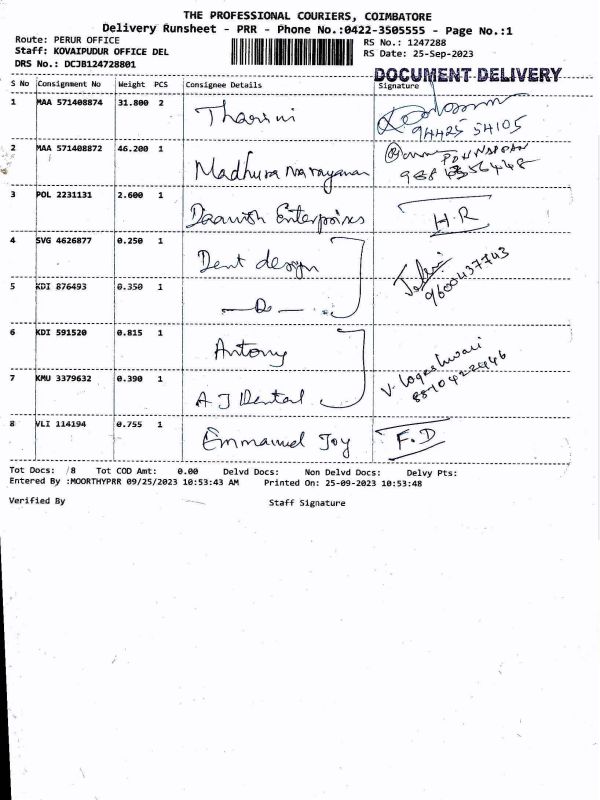 THE PROFESSIONAL COURIERS, COIMBATORE
Delivery Runsheet - PRR - Phone No.:0422-3505555 - Page No.:1
Route: PERUR OFFICE
RS No.: 1247288
Staff: KOVAIPUDUR OFFICE DEL
RS Date: 25-Sep-2023
DRS No.: DCJB124728801
DOCUMENT DELIVERY
S No Consignment No Weight PCS Consignee Details Signature
1 MAA 571408874 31.800 2 Tharini
94425 54105
2 MAA 571408872 46.200 1 Madhura Narayanan
PONNAPPAN
3 POL 2231131 2.600 1 Daanish Enterprises H.R
4 SVG 4626877 0.250 1 Dent design
9600437743
5 KDI 876493 0.350 1 —Do—
6 KDI 591520 0.815 1 Antony
V. Logeshwari
7 KMU 3379632 0.390 1 A J Dental
8870422446
8 VLI 114194 0.755 1 Emmanuel Joy F.D
Tot Docs: /8 Tot COD Amt: 0.00 Delvd Docs: Non Delvd Docs: Delvy Pts:
Entered By :MOORTHYPRR 09/25/2023 10:53:43 AM Printed On: 25-09-2023 10:53:48
Verified By Staff Signature